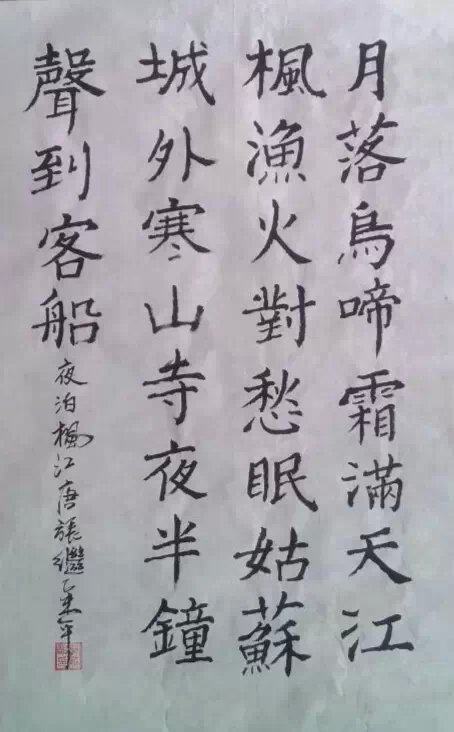 月落烏啼霜滿天江
楓漁火對愁眠姑蘇
城外寒山寺夜半鐘
聲到客船
夜泊楓江唐張繼乙未年